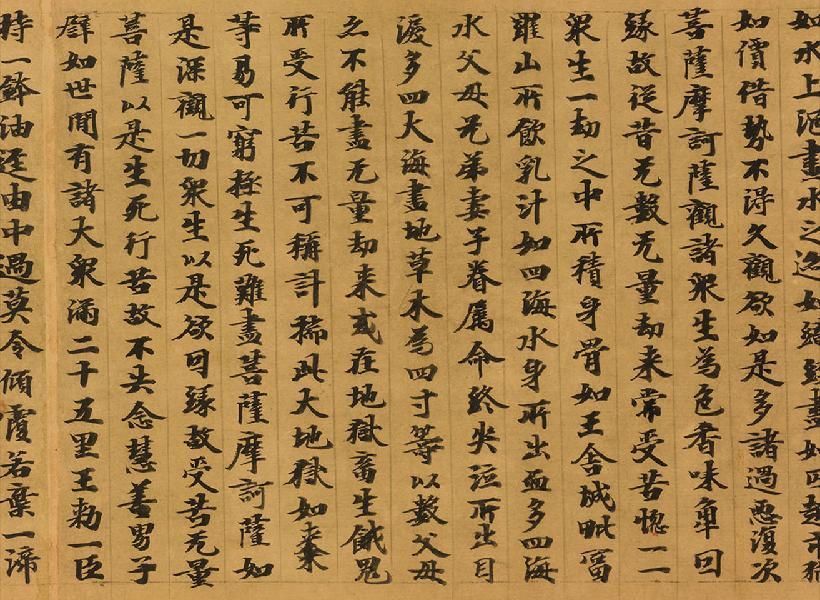 如水上泡畫水之迹如
如價借勢不得久觀欲如是多諸過惡復次
菩薩摩訶薩觀諸衆生為色香味因
緣故從昔无數无量劫來常受苦惱一一
衆生一劫之中所積身骨如王舍城毗富
羅山所飲乳汁如四海水身所出血多四海
水父母兄弟妻子眷屬命終哭泣所出目
淚多四大海盡地草木為四寸籌以數父母
亦不能盡无量劫来或在地獄畜生餓鬼
所受行苦不可稱計揣此大地獄如棗
等易可窮極生死難盡菩薩摩訶薩如
是深觀一切衆生以是欲因緣故受苦无量
菩薩以是生死行苦故不失念慧善男子
譬如世間有諸大衆滿二十五里王勑一臣
持一鉢油逕由中過莫令傾覆若棄一渧